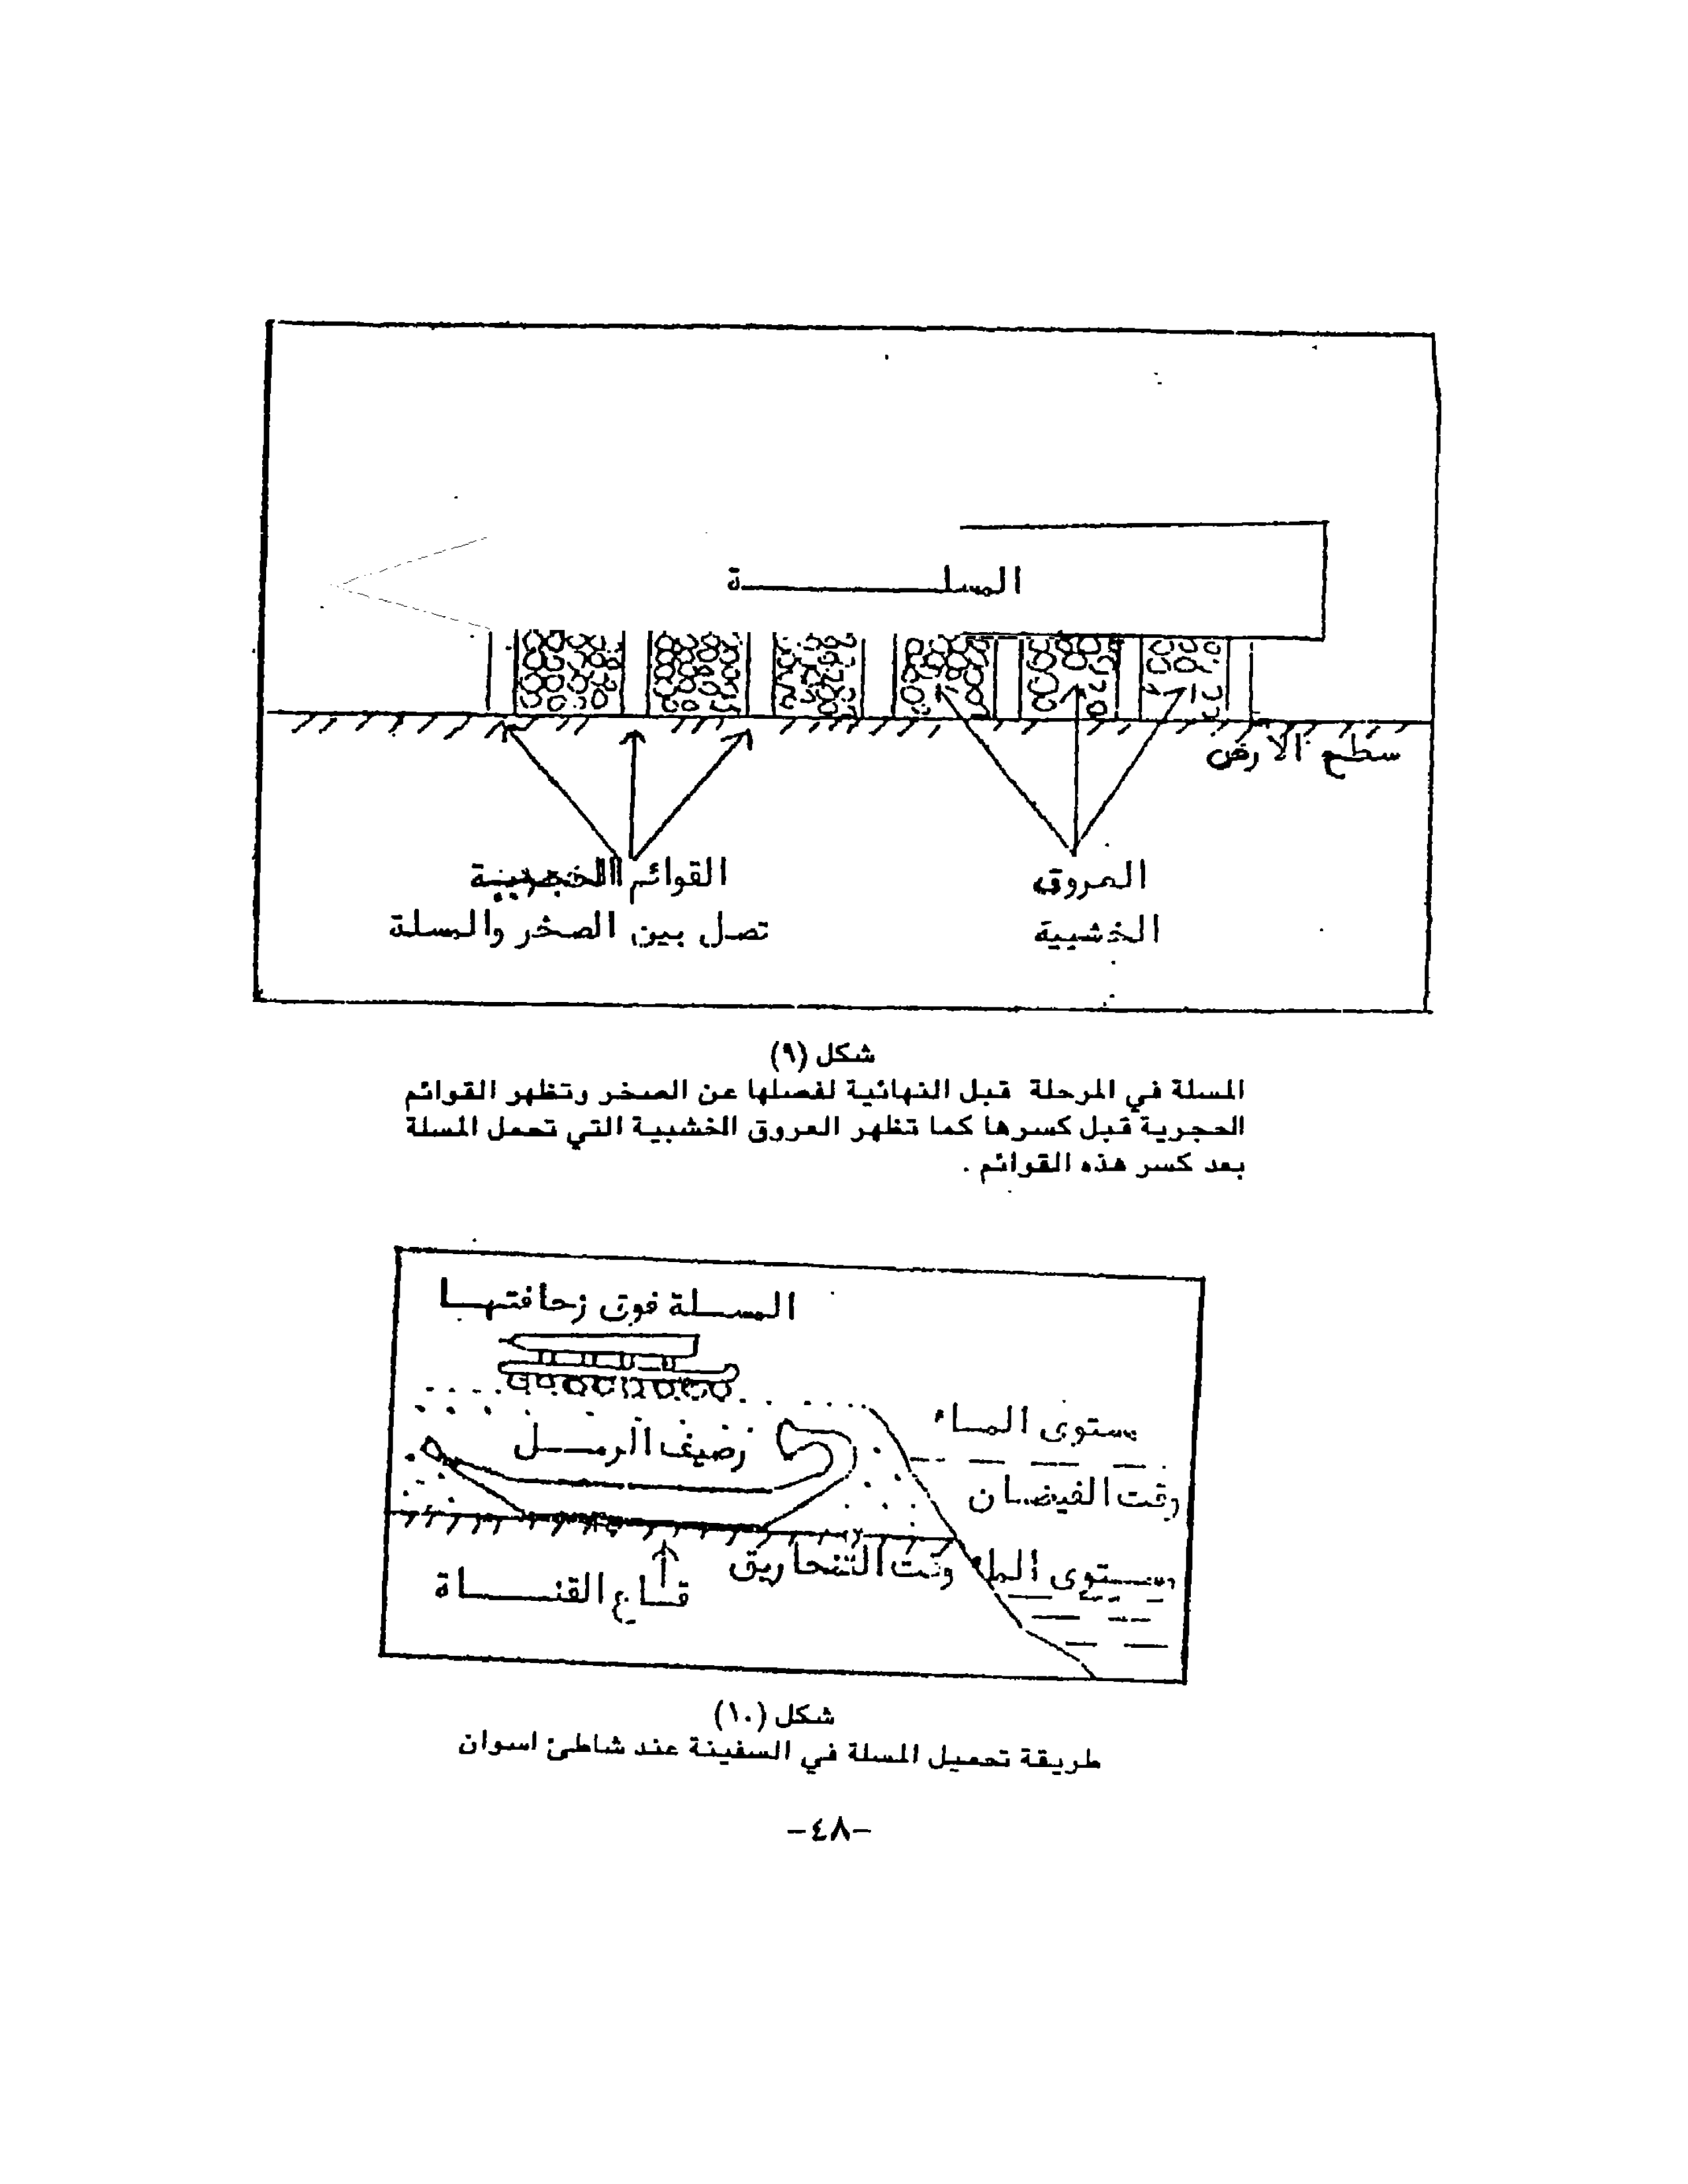 المسلة
سطح الأرض
العروق
الخشبية
القوائم الحجرية
تصل بين الصخر والمسلة
شكل (٩)
المسلة في المرحلة قبل النهائية لفصلها عن الصخر وتظهر القوائم
الحجرية قبل كسرها كما تظهر العروق الخشبية التي تحمل المسلة
بعد كسر هذه القوائم .
المسلة فوق زحافتها
مستوى الماء
رصيف الرمل
وقت الفيضان
مستوى الماء وقت التحاريق
قاع القناة
شكل (١٠)
طريقة تحميل المسلة في السفينة عند شاطئ اسوان
-٤٨-